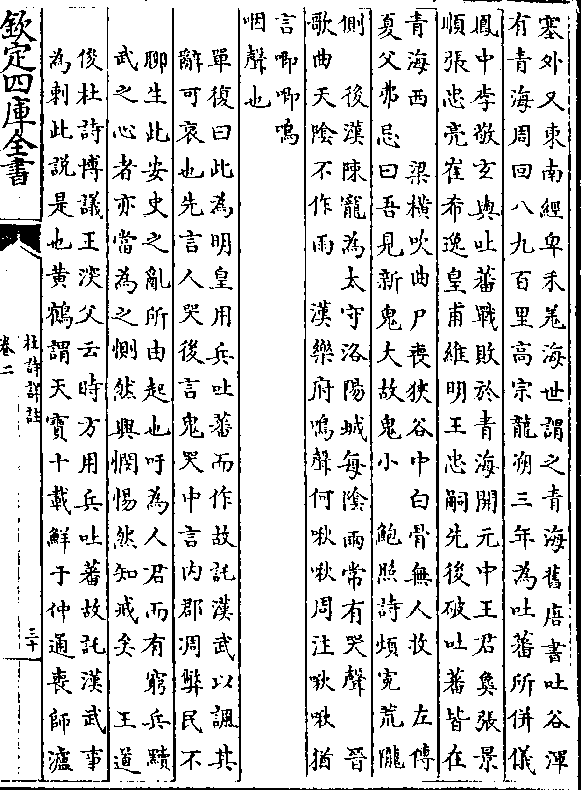 塞外又東南經卑禾羗海世謂之青海舊唐書吐谷渾
有青海周回八九百里高宗龍朔三年為吐蕃所併儀
鳳中李敬玄與吐蕃戰敗於青海開元中王君㚟張景
順張忠亮崔希逸皇甫維明王忠嗣先後破吐蕃皆在
青海西　梁橫吹曲尸喪狹谷中白骨無人收　左傳
夏父弗忌曰吾見新鬼大故鬼小　鮑照詩煩寃荒隴
側　後漢陳寵為太守洛陽城每陰雨常有哭聲　晉
歌曲天陰不作雨　漢樂府鳴聲何啾啾周注啾啾猶
言唧唧嗚
咽聲也
單復曰此為明皇用兵吐蕃而作故託漢武以諷其
辭可哀也先言人哭後言鬼哭中言内郡凋弊民不
聊生此安史之亂所由起也吁為人君而有窮兵黷
武之心者亦當為之惻然興憫惕然知戒矣　王道
俊杜詩博議王深父云時方用兵吐蕃故託漢武事
為刺此說是也黃鶴謂天寶十載鮮于仲通喪師瀘
欽定四庫全書
杜詩詳註
卷二
三十